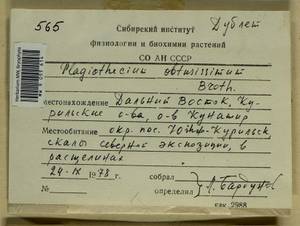 565
Дублет
Сибирский институт
физиологии и биохимии растений
СО АН СССР
Plagiothecium obtusissimum
Broth.
Местонахождение Дальний Восток, Ку-
рильские о-ва, о-в Кунашир
Местообитание окр. пос. Южно-Курильск
скалы северной экспозиции, в
расщелинах
24-IX 1973 г. собрал
№ определил Л. Бардунов